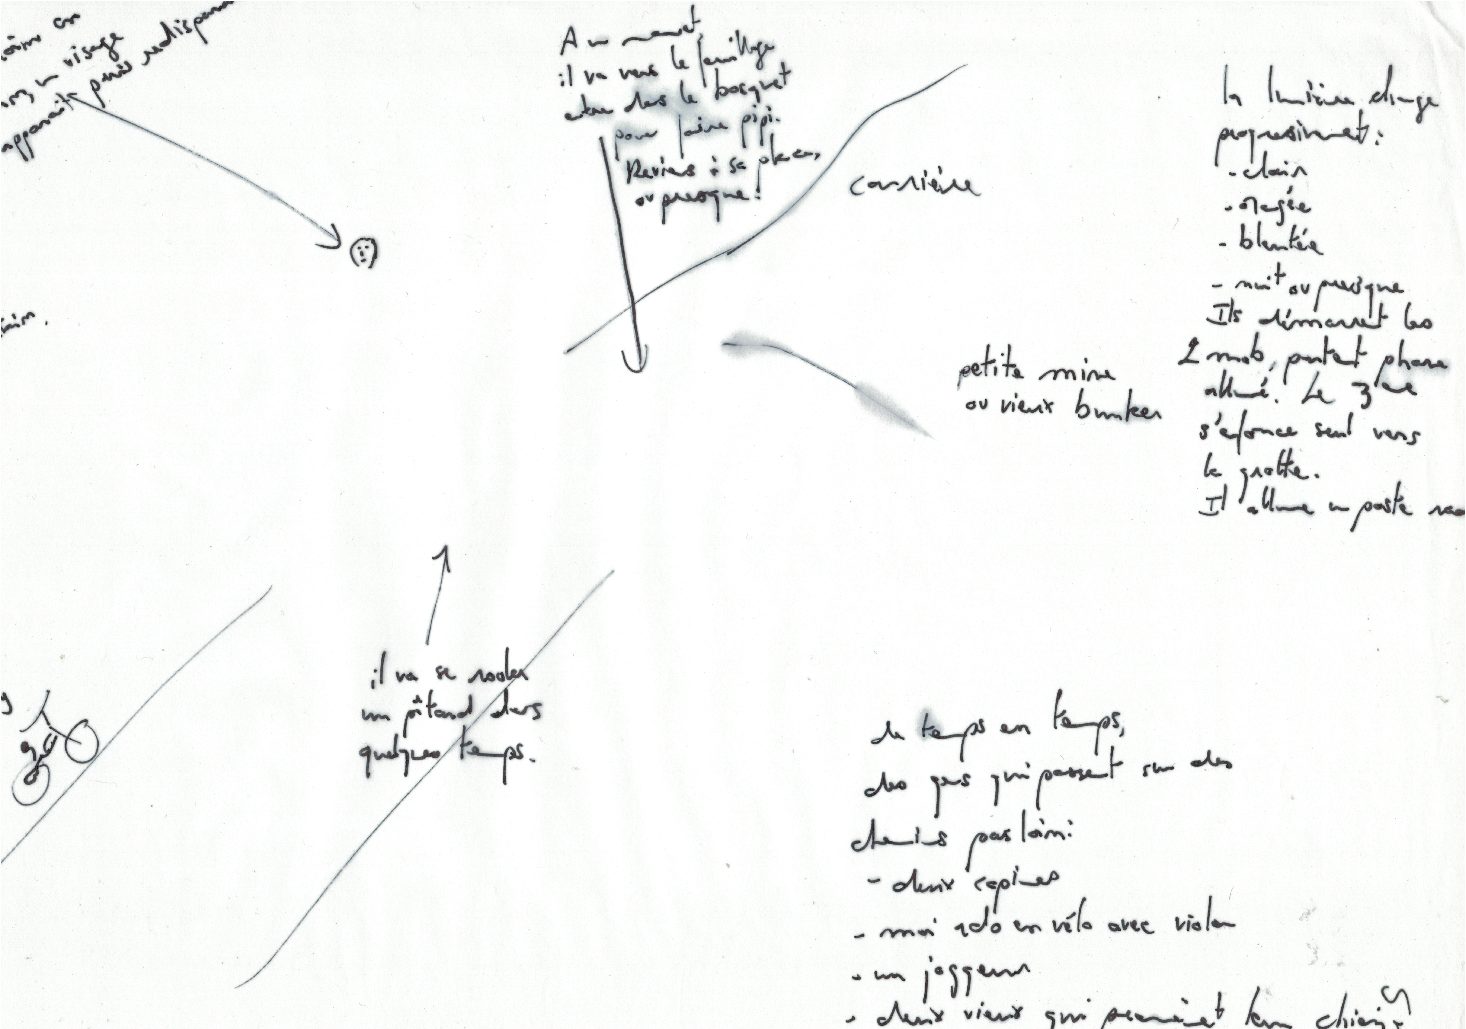 loin en
un visage
apparait puis redisparait
A un moment,
il va vers le feuillage
entre dans le bosquet
pour faire pipi.
Reviens à sa place,
ou presque!
carrière
petite mine
ou vieux bunker
la lumière change
progressivement:
- clair
- oragée
- bleutée
- nuit ou presque
Ils démarrent les
2 mob, partent phare
allumé. Le 3ème
s'enfonce seul vers
la grotte.
Il allume un poste
il va se rouler
un pétard dans
quelques temps.
de temps en temps,
des gens qui passent sur des
chemins pas loin:
- deux copines
- moi ado en vélo avec violon
- un joggeur
- deux vieux qui promènent leur chien